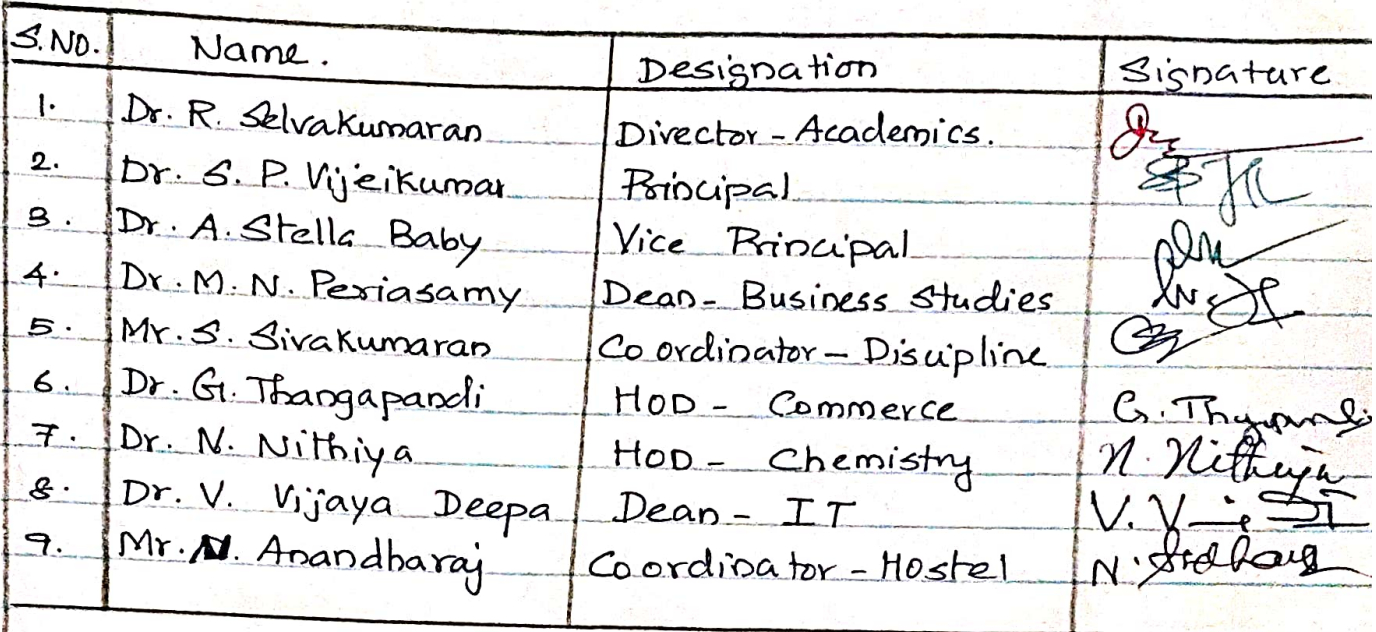 S.NO. Name. Designation Signature
1. Dr. R. Selvakumaran Director - Academics.
2. Dr. S. P. Vijeikumar Principal
3. Dr. A. Stella Baby Vice Principal
4. Dr. M. N. Periasamy Dean - Business Studies
5. Mr. S. Sivakumaran Coordinator - Discipline
6. Dr. G. Thangapandi HOD - Commerce
7. Dr. N. Nithiya HOD - Chemistry N. Nithiya
8. Dr. V. Vijaya Deepa Dean - IT
9. Mr. N. Anandharaj Coordinator - Hostel